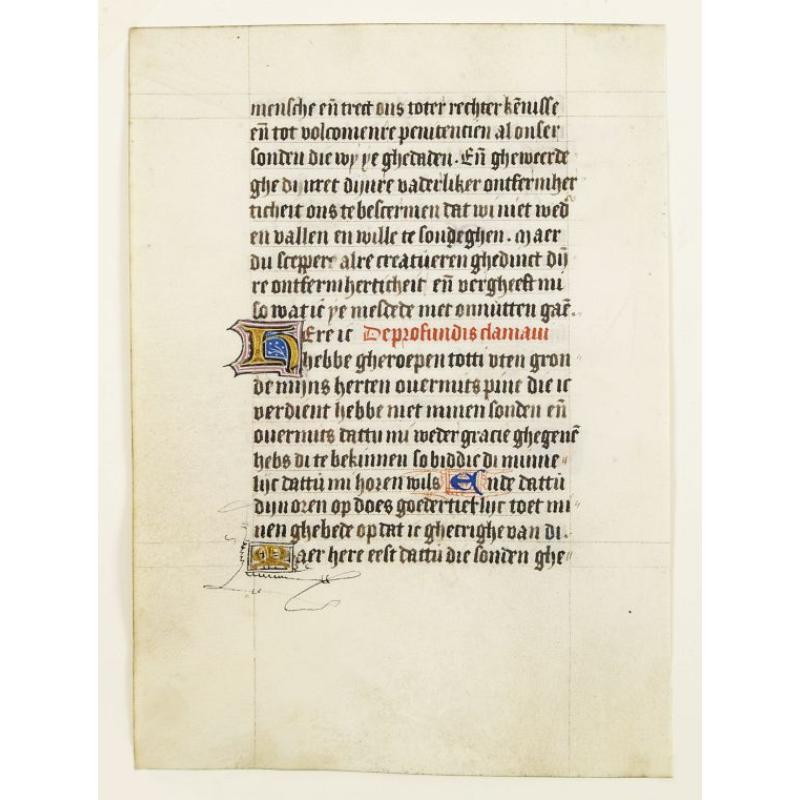 mensche en̄ trect ons toter rechter kēnisse
en̄ tot volcomenre penitencien al onser
sonden die wy ye ghedaden. En̄ gheweerde
ghe di mret dijnre vaderliker ontfermher
ticheit ons te bescermen dat wi niet wed̄
en vallen en wille te sondeghen. Maer
du sceppere alre creatueren ghedinct dij̄
re ontfermherticheit en̄ vergheeft mi
so wat ic ye mesdede met onnutten gaē.
Here ic De profundis clamaui
hebbe gheroepen totti vten gron
de mijns herten ouermits pine die ic
verdient hebbe met minen sonden en̄
ouermits dattu mi weder gracie ghegeuē
hebs di te bekinnen so biddic di minne
lijc dattu mi horen wils Ende dattu
dijn oren op does goedertierlijc toet mi
nen ghebede op dat ic ghecrighe van di.
Maer here eest dattu die sonden ghe